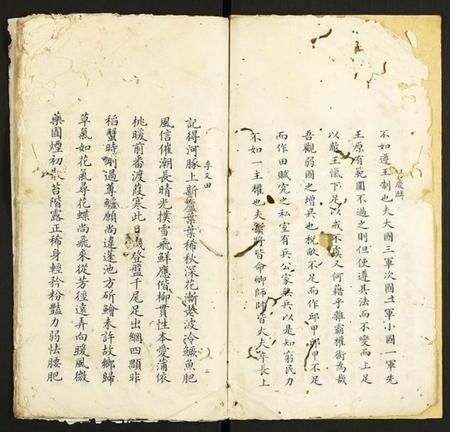 不如遵王制也夫大國三軍次國二軍小國一軍先
王原有範圍不過之則但使遵其法而不變而上足
以敵王愾下足以戒不虞又何藉乎雜霸權術為哉
吾觀弱國之增兵也稅敵不足而作邱甲邱甲不足
而作田賦寬之私室有兵公家無兵以是知窮民力
不如一主權也夫將皆命卿師皆大夫卒長上
李文田
記得河豚上新蘆葉葉稀秋深花漸老波冷鱖魚肥
風信催潮長晴光撲雪飛鮮應偕柳貫性本愛蒲依
桃暖前番渡葭寒此日磯登盤千尾足出網四顋非
稻蟹時剛過蓴鱸願尚違蓬池方斫鱠未許故鄉歸
草氣如花氣尋花蝶尚飛來從芳徑遠弄向暖風微
藥圃煙初散苔階露正稀身輕矜粉豔力弱怯腰肥